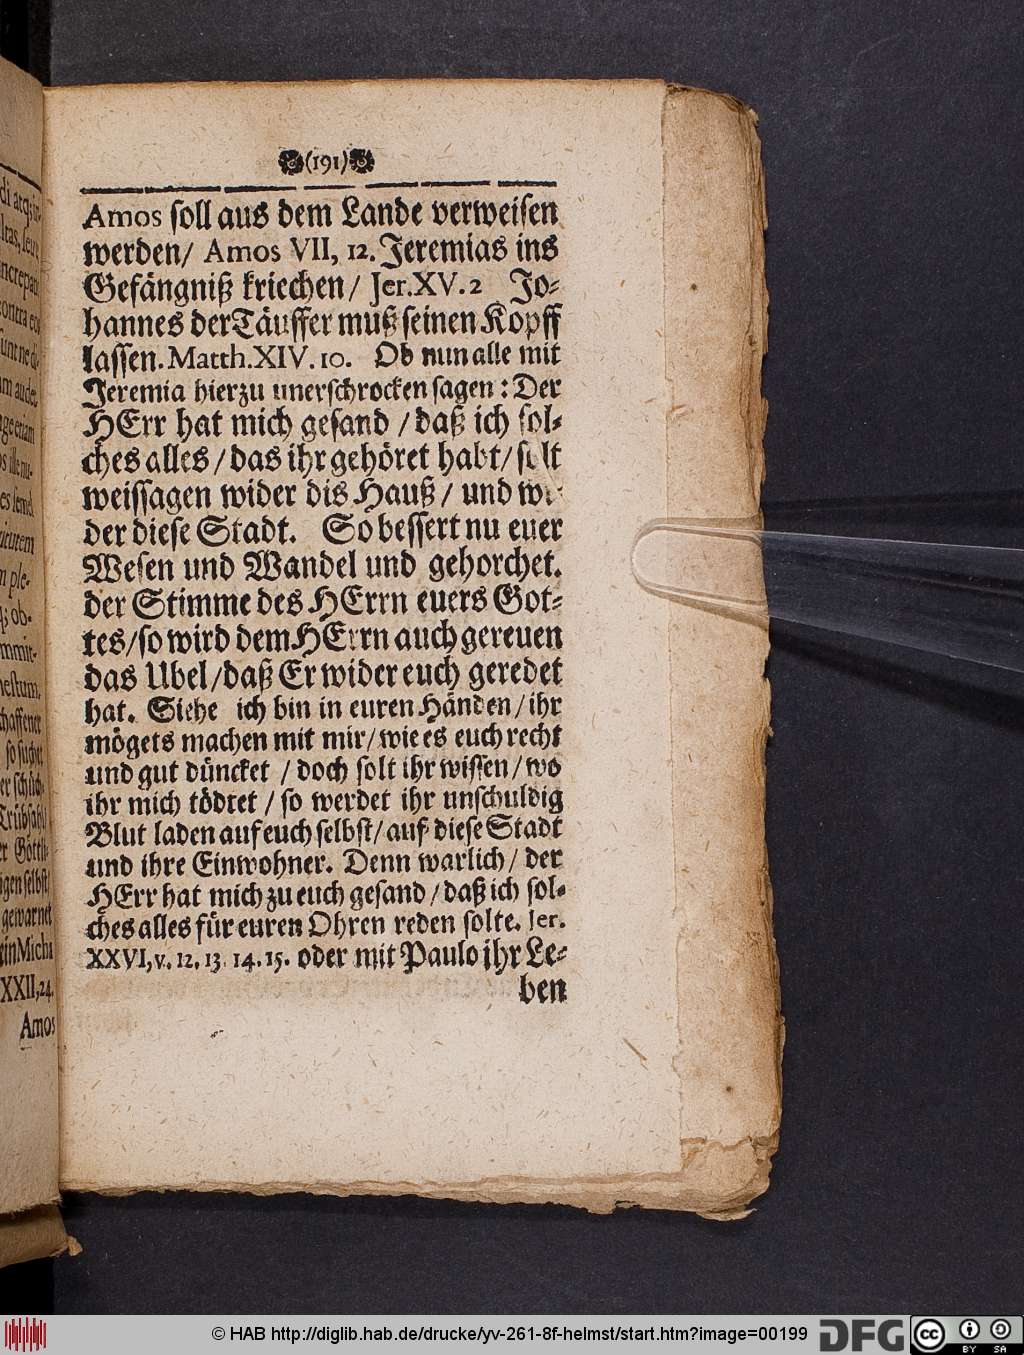 (191)
Amos soll aus dem Lande verweisen
werden/ Amos VII, 12. Jeremias ins
Gefängniß kriechen/ Jer. XV. 2 Jo-
hannes der Täuffer muß seinen Kopff
lassen. Matth. XIV. 10. Ob nun alle mit
Jeremia hierzu unerschrocken sagen: Der
HErr hat mich gesand / daß ich sol-
ches alles / das ihr gehöret habt / solt
weissagen wider dis Hauß / und wi-
der diese Stadt. So bessert nu euer
Wesen und Wandel und gehorchet.
der Stimme des HErrn euers Got-
tes/so wird dem HErrn auch gereuen
das Ubel/daß Er wider euch geredet
hat. Siehe ich bin in euren Händen/ihr
mögets machen mit mir/wie es euch recht
und gut düncket / doch solt ihr wissen/wo
ihr mich tödtet / so werdet ihr unschuldig
Blut laden auf euch selbst/auf diese Stadt
und ihre Einwohner. Denn warlich / der
HErr hat mich zu euch gesand / daß ich sol-
ches alles für euren Ohren reden solte. Jer.
XXVI, v. 12. 13. 14. 15. oder mit Paulo ihr Le-
ben
ne di-
n ple-
mmit-
nestum.
chaffener
so suchet
er Göttli-
gen selbst
gewarnet
ein Micha
XXII, 24.
Amos
© HAB http://diglib.hab.de/drucke/yv-261-8f-helmst/start.htm?image=00199
DFG
cc
BY SA